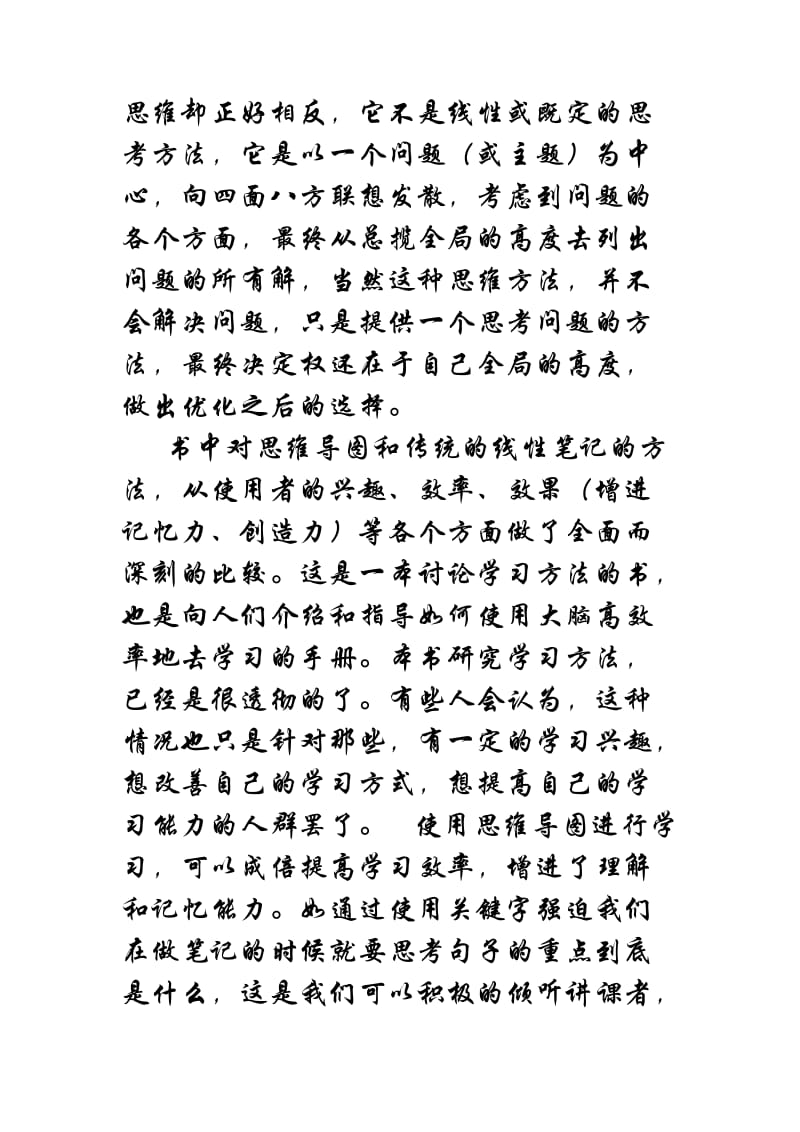 思维却正好相反，它不是线性或既定的思
考方法，它是以一个问题（或主题）为中
心，向四面八方联想发散，考虑到问题的
各个方面，最终从总揽全局的高度去列出
问题的所有解，当然这种思维方法，并不
会解决问题，只是提供一个思考问题的方
法，最终决定权还在于自己全局的高度，
做出优化之后的选择。
书中对思维导图和传统的线性笔记的方
法，从使用者的兴趣、效率、效果（增进
记忆力、创造力）等各个方面做了全面而
深刻的比较。这是一本讨论学习方法的书，
也是向人们介绍和指导如何使用大脑高效
率地去学习的手册。本书研究学习方法，
已经是很透彻的了。有些人会认为，这种
情况也只是针对那些，有一定的学习兴趣，
想改善自己的学习方式，想提高自己的学
习能力的人群罢了。 使用思维导图进行学
习，可以成倍提高学习效率，增进了理解
和记忆能力。如通过使用关键字强迫我们
在做笔记的时候就要思考句子的重点到底
是什么，这是我们可以积极的倾听讲课者，